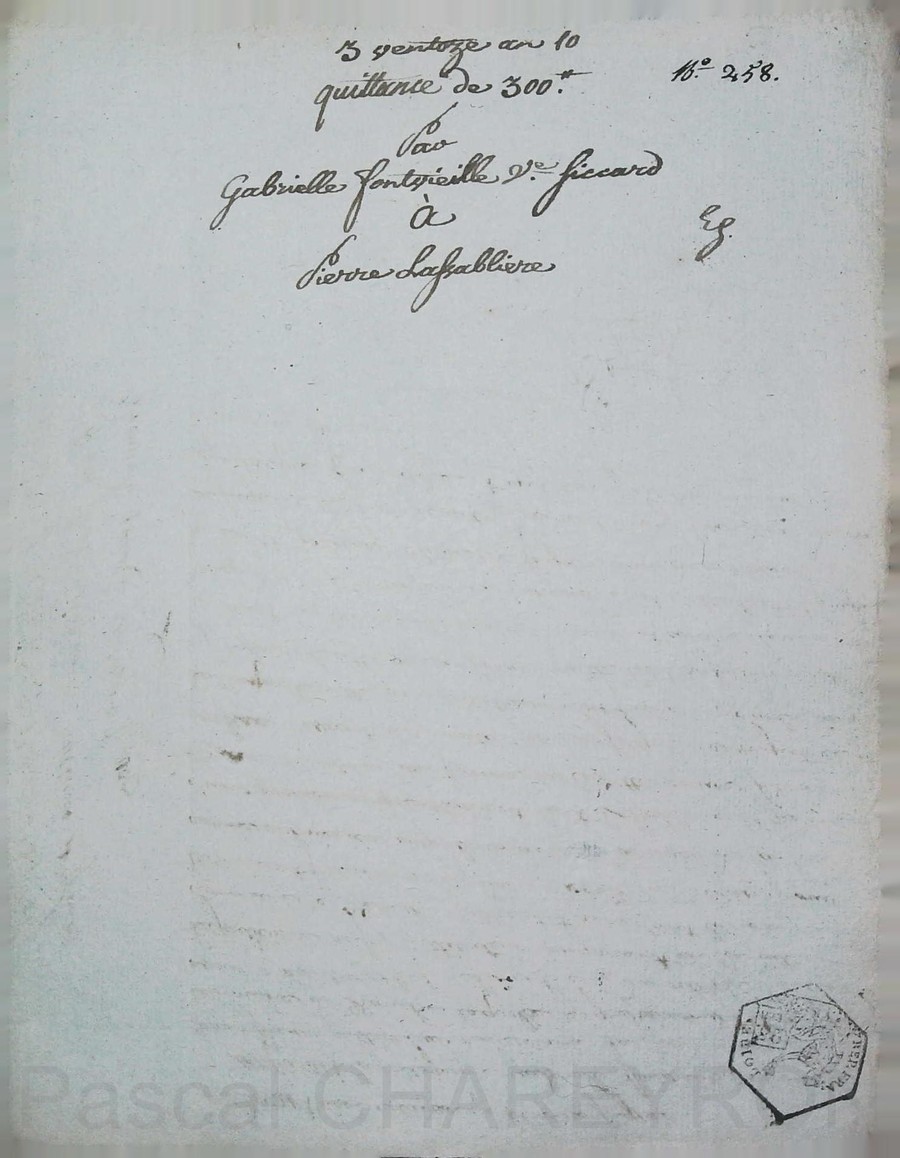 3 ventoze an 10
N.º 258.
quittance de 300.#
Par
Gabrielle fontvieille V.e Siccard
à
Pierre Lassabliere
LOIRE
REP. FRA
Pascal CHAREYRON